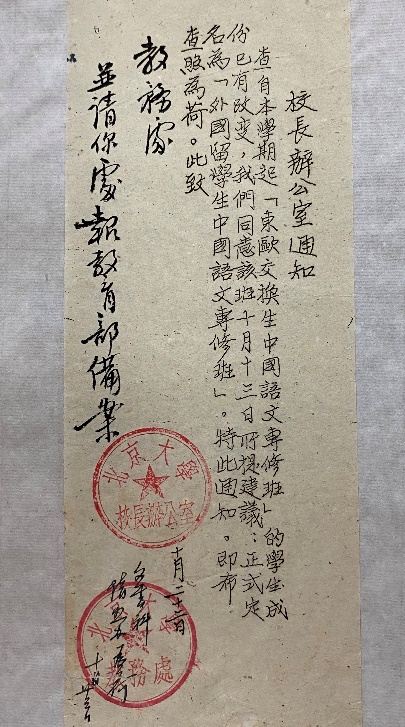 校長辦公室通知
查自本學期起「東歐交換生中國語文專修班」的學生成
份已有改变，我們同意該班十月十三日所提建議：正式定
名為「外國留學生中國語文專修班」。特此通知。即希
查照為荷。此致
教務處
並請你處報教育部備案
十月二十二日
北京大學
校長辦公室
教務處